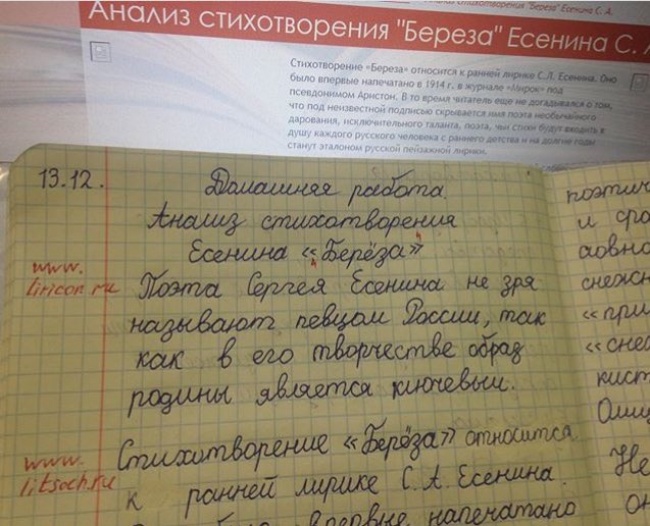 Анализ стихотворения "Береза" Есенина С. А.
Анализ стихотворения "Береза" Есенина С.
Стихотворение «Береза» относится к ранней лирике С.Л. Есенина. Оно
было впервые напечатано в 1914 г. в журнале «Мирок» под
псевдонимом Аристон. В то время читатель еще не догадывался о том,
что под неизвестной подписью скрывается имя поэта необычайного
дарования, исключительного таланта, поэта, чьи стихи будут входить в
душу каждого русского человека с раннего детства и на долгие годы
станут эталоном русской пейзажной лирики.
13.12.
Домашняя работа.
Анализ стихотворения
Есенина «Берёза»
www.
liricon.ru
Поэта Сергея Есенина не зря
называют певцом России, так
как в его творчестве образ
родины является ключевым.
www.
litsoch.ru
Стихотворение «Берёза» относится
к ранней лирике С. А. Есенина.
впервые напечатано
поэтич
и сра
ловно
снежн
«при
«сне
кист
Не
он